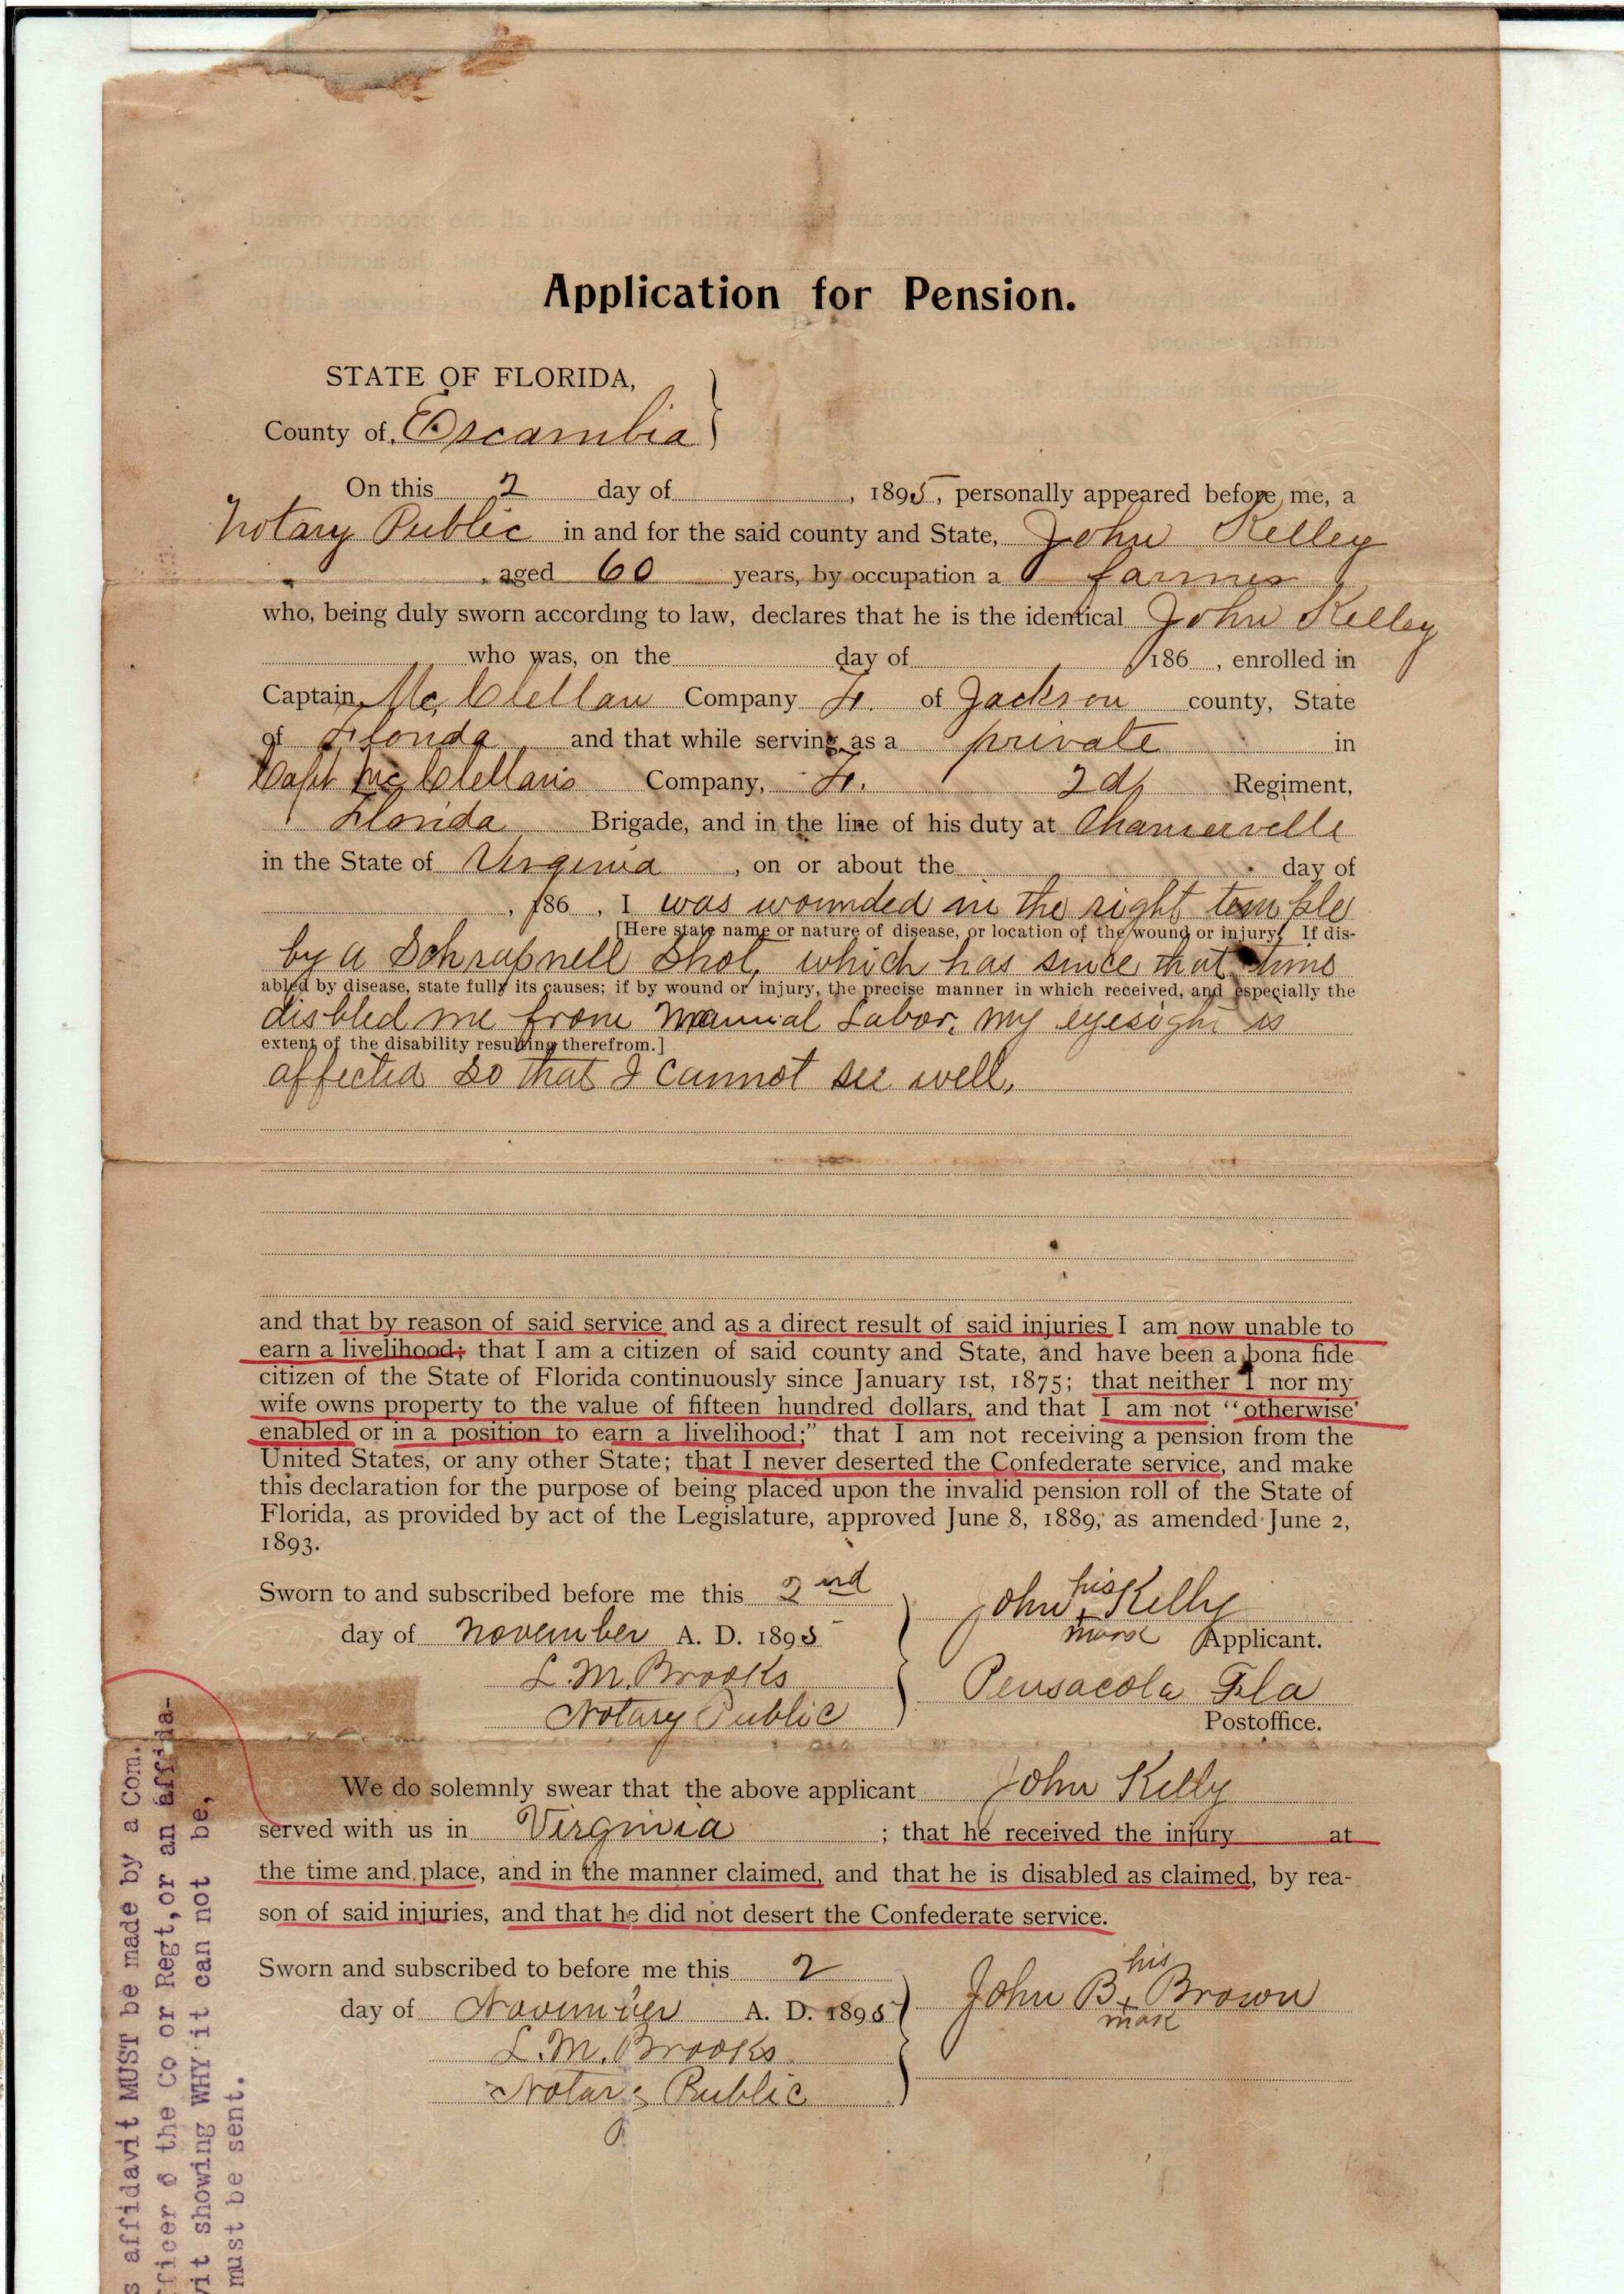 Application for Pension.
STATE OF FLORIDA,
County of Escambia
On this 2 day of , 1895, personally appeared before me, a
Notary Public in and for the said county and State, John Kelley
, aged 60 years, by occupation a farmer
who, being duly sworn according to law, declares that he is the identical John Kelley
who was, on the day of 186 , enrolled in
Captain McClellan Company of Jackson county, State
of Florida and that while serving as a private in
Capt McClellan's Company, 2d Regiment,
Florida Brigade, and in the line of his duty at
in the State of Virginia , on or about the day of
, 186 , I was wounded in the right temple
[Here state name or nature of disease, or location of the wound or injury. If dis-
by a Schrapnell Shot, which has since that time
abled by disease, state fully its causes; if by wound or injury, the precise manner in which received, and especially the
disbled me from Manual Labor, my eyesight is
extent of the disability resulting therefrom.]
affected so that I cannot see well.
and that by reason of said service and as a direct result of said injuries I am now unable to
earn a livelihood; that I am a citizen of said county and State, and have been a bona fide
citizen of the State of Florida continuously since January 1st, 1875; that neither I nor my
wife owns property to the value of fifteen hundred dollars, and that I am not "otherwise
enabled or in a position to earn a livelihood;" that I am not receiving a pension from the
United States, or any other State; that I never deserted the Confederate service, and make
this declaration for the purpose of being placed upon the invalid pension roll of the State of
Florida, as provided by act of the Legislature, approved June 8, 1889, as amended June 2,
1893.
Sworn to and subscribed before me this 2nd
day of November A. D. 1895
L. M. Brooks
Notary Public
his
John x Kelly
mark
Applicant.
Pensacola Fla
Postoffice.
We do solemnly swear that the above applicant John Kelly
served with us in Virginia ; that he received the injury at
the time and place, and in the manner claimed, and that he is disabled as claimed, by rea-
son of said injuries, and that he did not desert the Confederate service.
Sworn and subscribed to before me this 2
day of November A. D. 1895
L. M. Brooks
Notary Public
his
John B x Brown
mark
s affidavit MUST be made by a Com.
fficer o the Co or Regt, or an affida-
vit showing WHY it can not be,
must be sent.